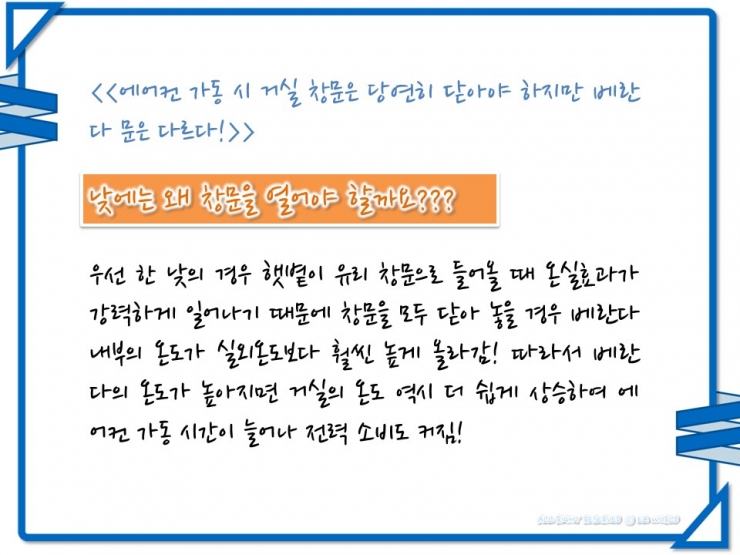 <<에어컨 가동 시 거실 창문은 당연히 닫아야 하지만 베란
다 문은 다르다!>>
낮에는 왜 창문을 열어야 할까요???
우선 한 낮의 경우 햇볕이 유리 창문으로 들어올 때 온실효과가
강력하게 일어나기 때문에 창문을 모두 닫아 놓을 경우 베란다
내부의 온도가 실외온도보다 훨씬 높게 올라감! 따라서 베란
다의 온도가 높아지면 거실의 온도 역시 더 쉽게 상승하여 에
어컨 가동 시간이 늘어나 전력 소비도 커짐!